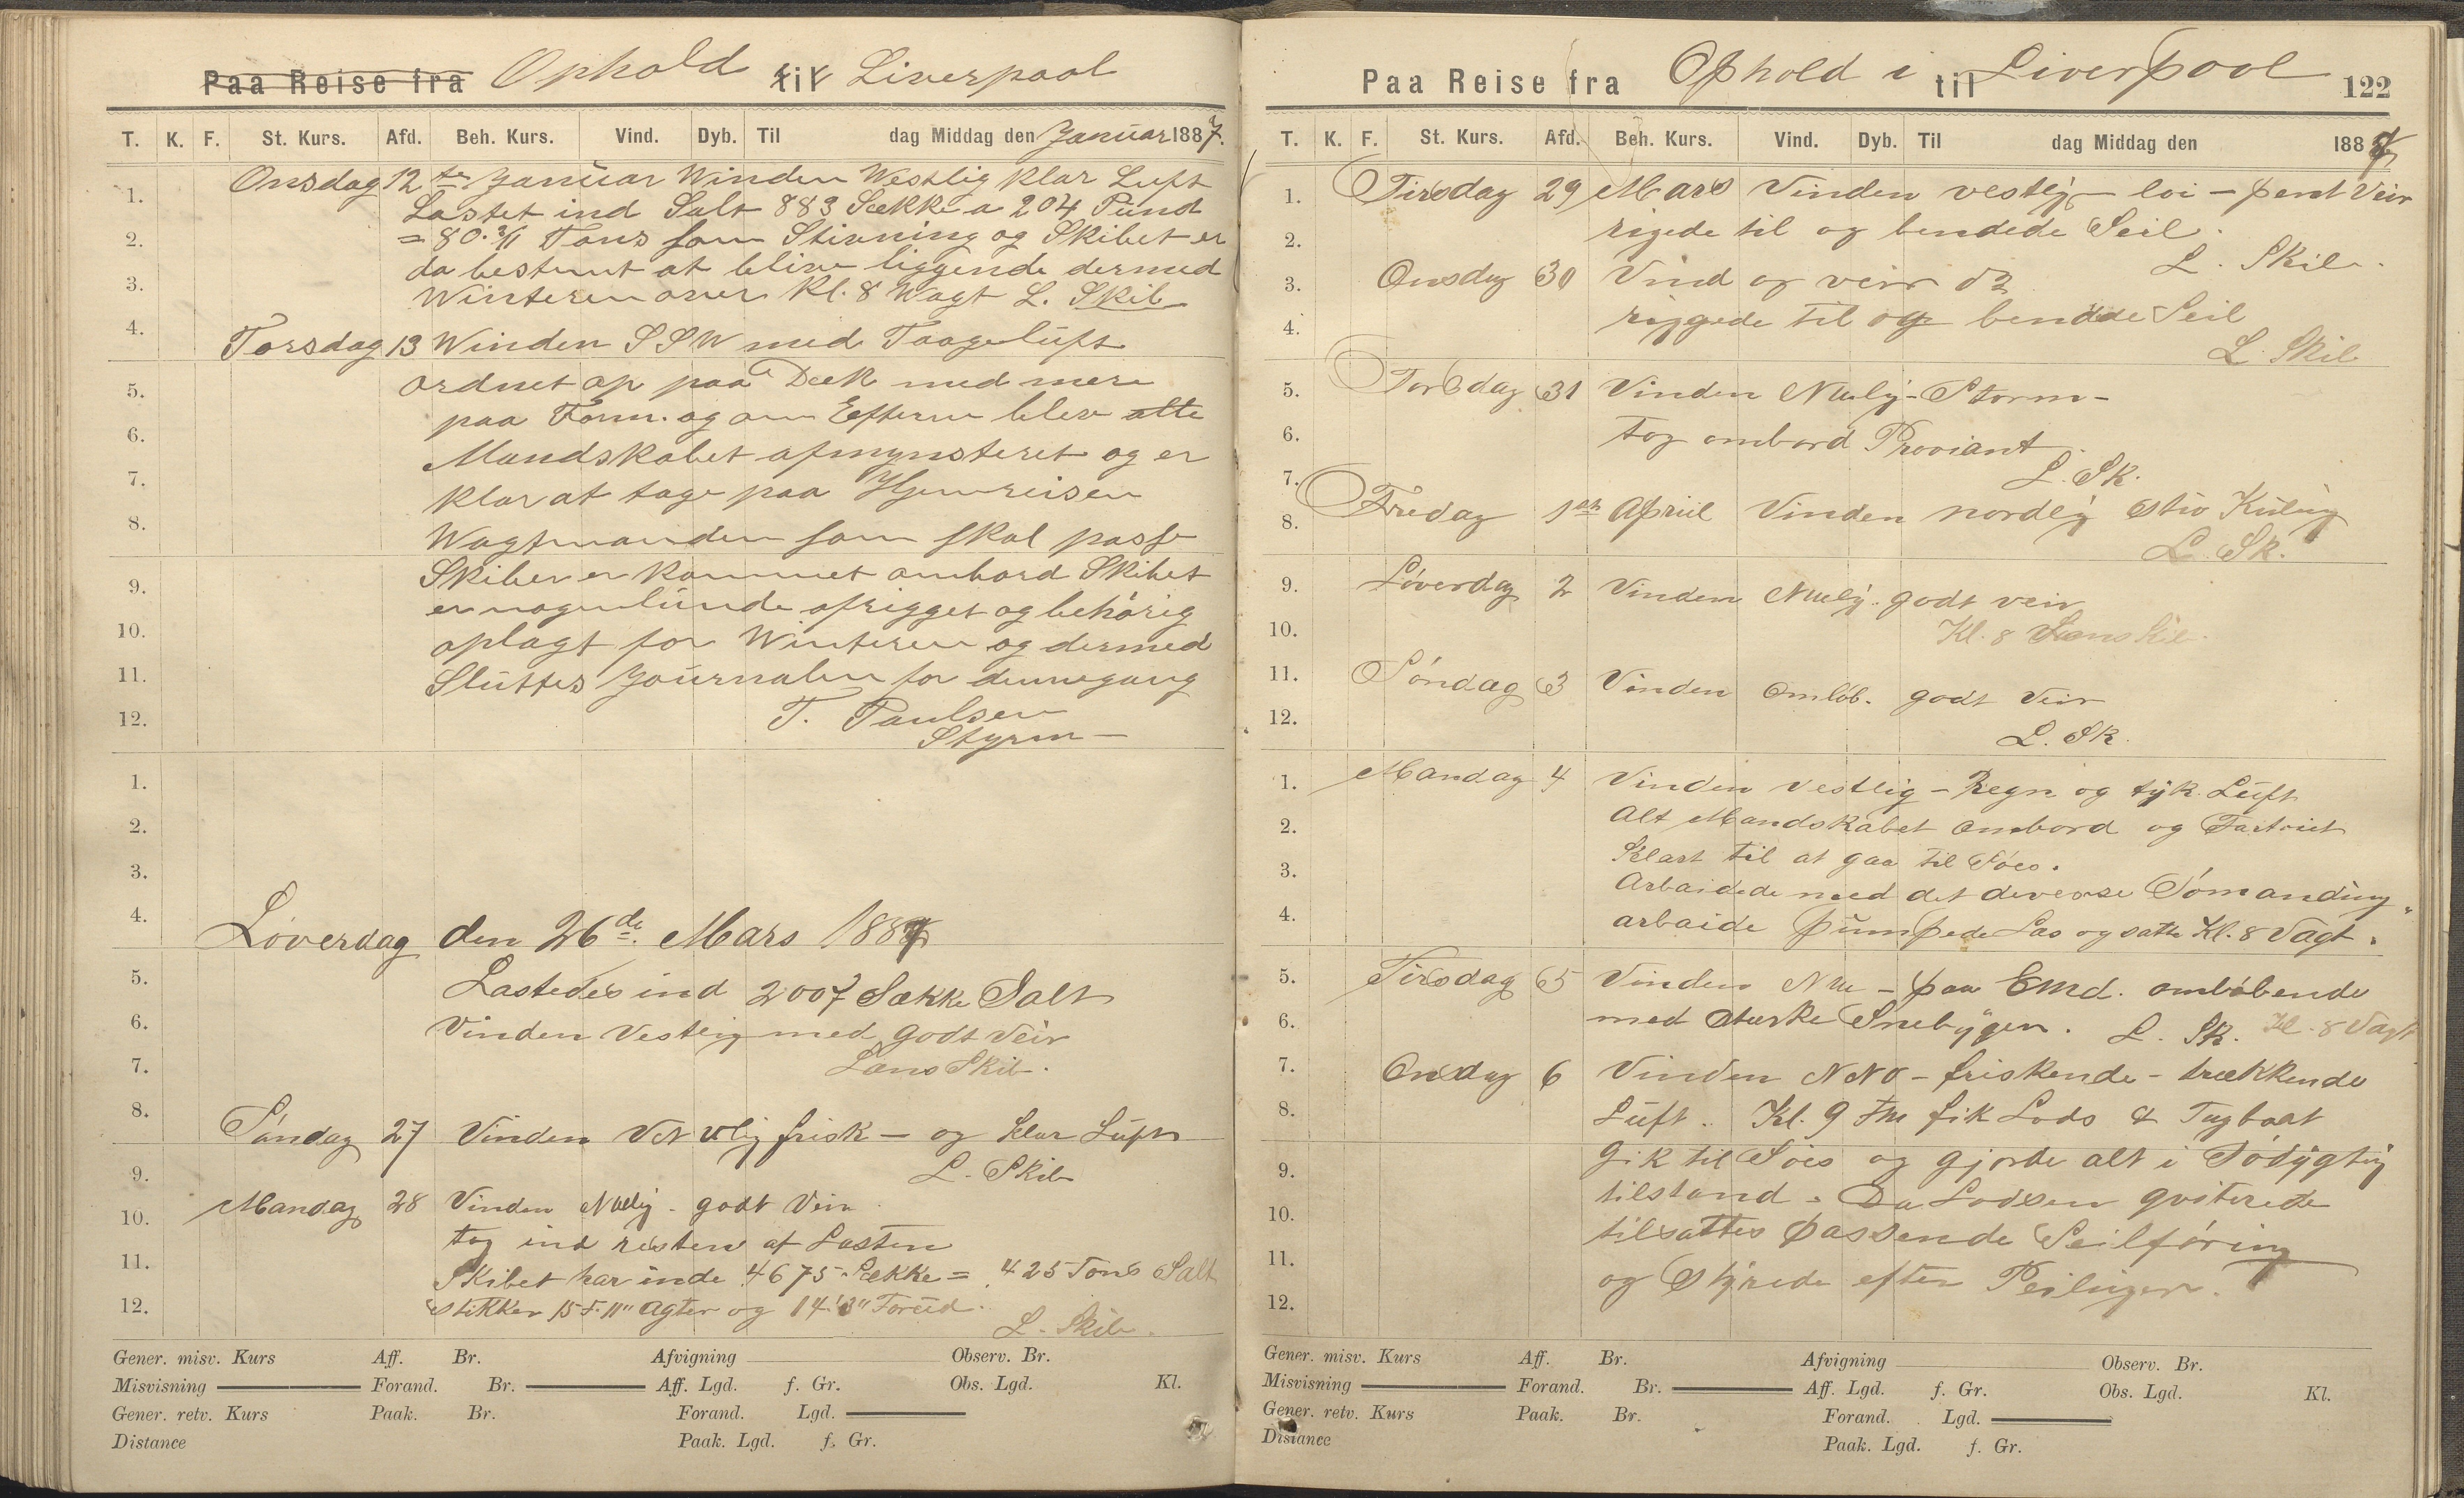 Paa Reise fra Ophold til Liverpool
T. K. F. St. Kurs. Afd. Beh. Kurs. Vind. Dyb. Til dag Middag den Januar 1887.
Onsdag 12te Januar Winden Westlig klar Luft
Lastet ind Salt 883 Sække a 204 Pund
= 80. Tons som Stivning og Skibet er
da bestemt at blive liggende dermed
Winteren over Kl. 8 Wagt L. Skib
Torsdag 13 Winden SSW med Taageluft
ordnet op paa Dæk med mere
paa Form. og om Efterm blev alle
Mandskabet afmynsteret og er
klar at tage paa Hjemreisen
Wagtmanden som skal passe
Skibet er kommet ombord Skibet
er nogenlunde afrigget og behørig
oplagt for Winteren og dermed
Sluttes Journalen for dennegang
T. Paulsen
Styrm
Løverdag den 26de Mars 1887
Lastedes ind 2007 Sække Salt
Vinden Vestlig med godt Veir
Læns Skib.
Søndag 27 Vinden VNVlig frisk – og klar Luft
L. Skib
Mandag 28 Vinden NVlig - godt Veir
tog ind resten af Lasten
Skibet har inde 4675 Sække = 425 Tons Salt
stikker 15 F. 11" Agter og 14' 3" Forud.
L. Skib.
1.
2.
3.
4.
5.
6.
7.
8.
9.
10.
11.
12.
1.
2.
3.
4.
5.
6.
7.
8.
9.
10.
11.
12.
Gener. misv. Kurs Aff. Br. Afvigning Observ. Br.
Misvisning Forand. Br. Aff. Lgd. f. Gr. Obs. Lgd. Kl.
Gener. retv. Kurs Paak. Br. Forand. Lgd.
Distance Paak. Lgd. f. Gr.
Paa Reise fra Ophold i til Liverpool 122
T. K. F. St. Kurs. Afd. Beh. Kurs. Vind. Dyb. Til dag Middag den 1887
Tirsdag 29 Mars Vinden vestlig – loi – pent Veir
rigede til og bendede Seil.
L. Skib.
Onsdag 30 Vind og veir do
riggede til og bendede Seil
L. Skib
Torsdag 31 Vinden NVlig - Storm -
tog ombord Proviant.
L. Sk.
Fredag 1ste April Vinden nordlig stiv Kuling
L. Sk.
Løverdag 2 Vinden NVlig. godt veir
Kl. 8 Læns Skib.
Søndag 3 Vinden Omløb. godt Veir
L. Sk.
Mandag 4 Vinden Vestlig – Regn og tyk Luft
Alt Mandskabet ombord og Fartøiet
Klart til at gaa til Søes.
Arbaidede med det deverse Sømandings
arbaide pumpede Læs og satte Kl. 8 Vagt.
Tirsdag 5 Vinden NW – paa Emd. omløbende
med sterke Snebyger. L. Sk. Kl. 8 Vagt
Onsdag 6 Vinden NNO – friskende – trækkende
Luft. Kl. 9 Fm fik Lods & Tugboat
gik til Søes og gjorde alt i Sødygtig
tilstand. Da Lodsen qviterede
tilsattes passende Seilføring
og Styrede efter Peilinger.
1.
2.
3.
4.
5.
6.
7.
8.
9.
10.
11.
12.
1.
2.
3.
4.
5.
6.
7.
8.
9.
10.
11.
12.
Gener. misv. Kurs Aff. Br. Afvigning Observ. Br.
Misvisning Forand. Br. Aff. Lgd. f. Gr. Obs. Lgd. Kl.
Gener. retv. Kurs Paak. Br. Forand. Lgd.
Distance Paak. Lgd. f. Gr.